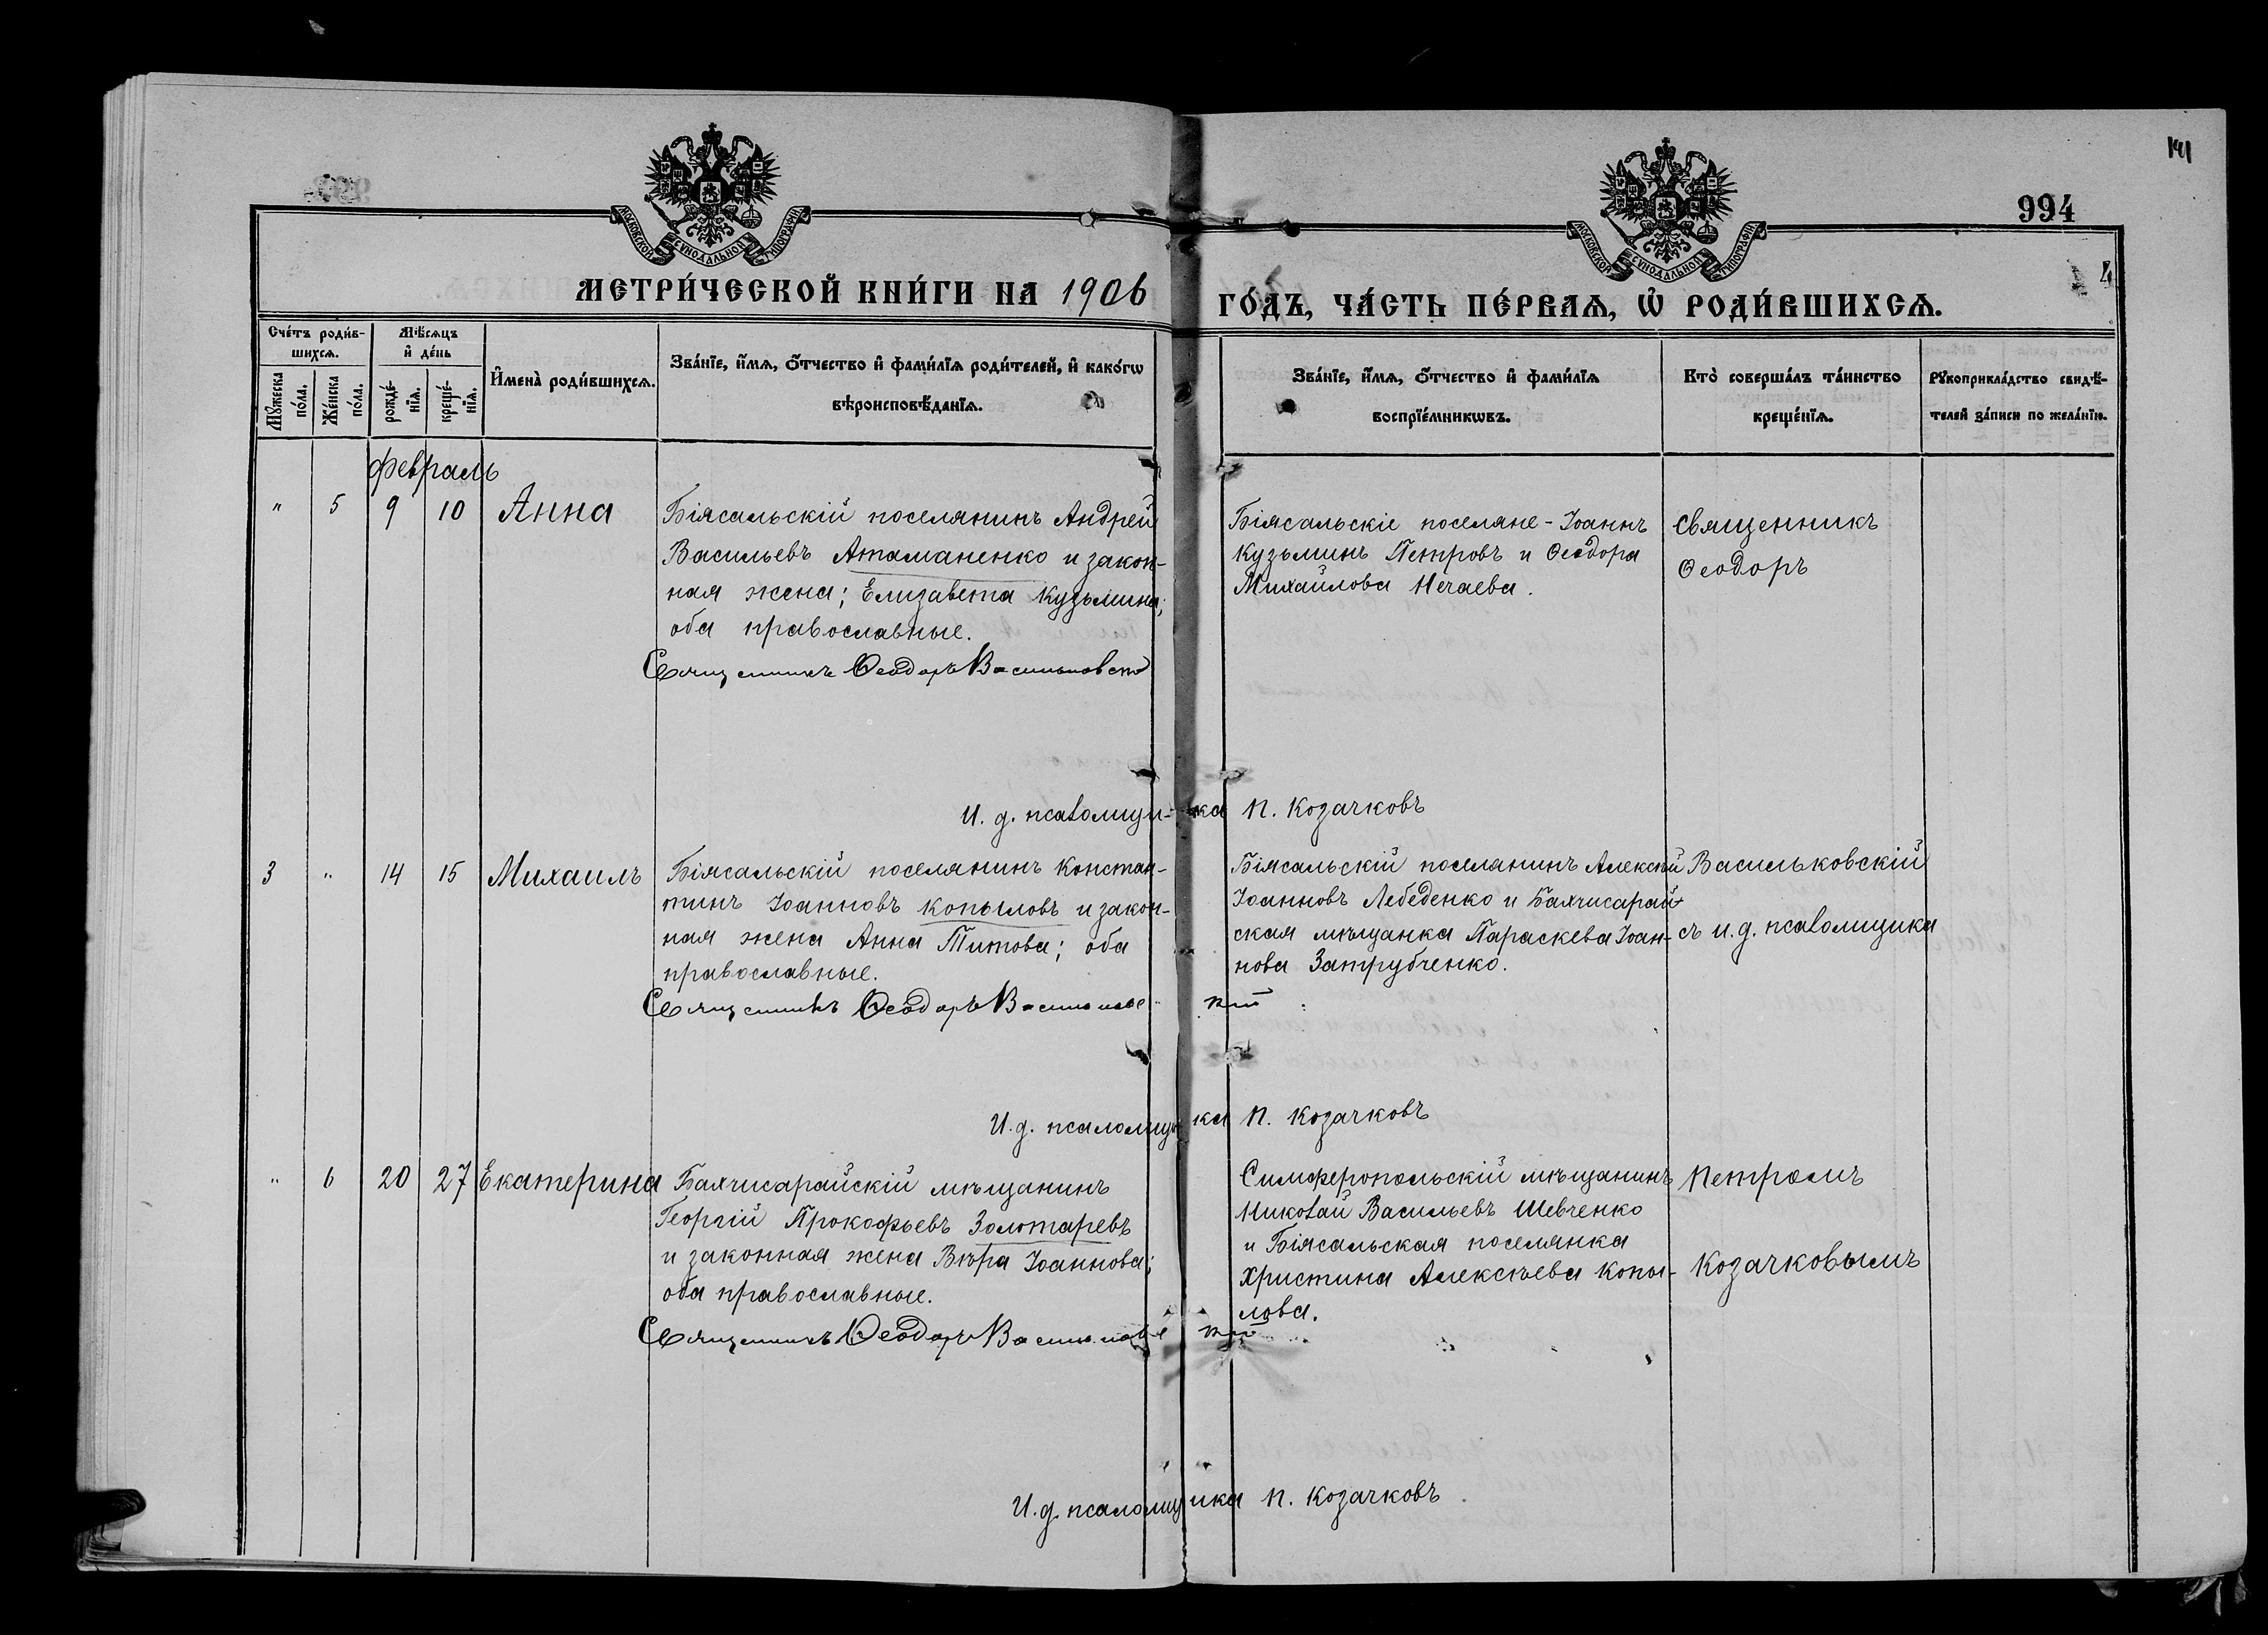 994
4
МОСКОВСКОЙ СѴНОДАЛЬНОЙ ТИПОГРАФІИ
МОСКОВСКОЙ СѴНОДАЛЬНОЙ ТИПОГРАФІИ
МЕТРИ́ЧЕСКОЙ КНИ́ГИ НА 1906
ГО́ДЪ, ЧА́СТЬ ПЕ́РВАѦ, Ѡ҆ РОДИ́ВШИХСѦ.
Сче́тъ роди́в-
шихсѧ.
Мꙋ́жеска
по́ла.
Же́нска
по́ла.
Мѣ́сѧцъ
и҆ де́нь
рожде́-
нїѧ.
креще́-
нїѧ.
И҆мена̀ роди́вшихсѧ.
Зва́нїе, и҆́мѧ, ѻ҆́тчество и҆ фами́лїѧ роди́телей, и҆ како́гѡ
вѣроисповѣ́данїѧ.
Зва́нїе, и҆́мѧ, ѻ҆́тчество и҆ фами́лїѧ
воспрїе́мникѡвъ.
Кто̀ соверша́лъ та́инство
креще́нїѧ.
Рꙋкоприкла́дство свидѣ́-
телей за́писи по жела́нїю.
Февраль
" 5 9 10 Анна
Біясальскій поселянинъ Андрей
Васильевъ Атаманенко и закон-
ная жена; Елизавета Кузьмина;
оба православные.
Священникъ Ѳеодоръ Васильковскій
Біясальскіе поселяне - Іоаннъ
Кузьминъ Петровъ и Ѳеодора
Михайлова Нечаева.
Священникъ
Ѳеодоръ
И. д. псаломщика П. Козачковъ
3 " 14 15 Михаилъ
Біясальскій поселянинъ Констан-
тинъ Іоанновъ Копыловъ и закон-
ная жена Анна Титова; оба
православные.
Священникъ Ѳеодоръ Васильковскій
Біясальскій поселянинъ Алексѣй
Іоанновъ Лебеденко и Бахчисарай-
ская мѣщанка Параскева Іоан-
нова Затрубченко.
Васильковскій
съ и. д. псаломщика
И. д. псаломщика П. Козачковъ
" 6 20 27 Екатерина
Бахчисарайскій мѣщанинъ
Георгій Прокофьевъ Золотаревъ
и законная жена Вѣра Іоаннова;
оба православные.
Священникъ Ѳеодоръ Васильковскій
Симферопольскій мѣщанинъ
Николай Васильевъ Шевченко
и Біясальская поселянка
Христина Алексѣева Копы-
лова.
Петромъ
Козачковымъ
И. д. псаломщика П. Козачковъ